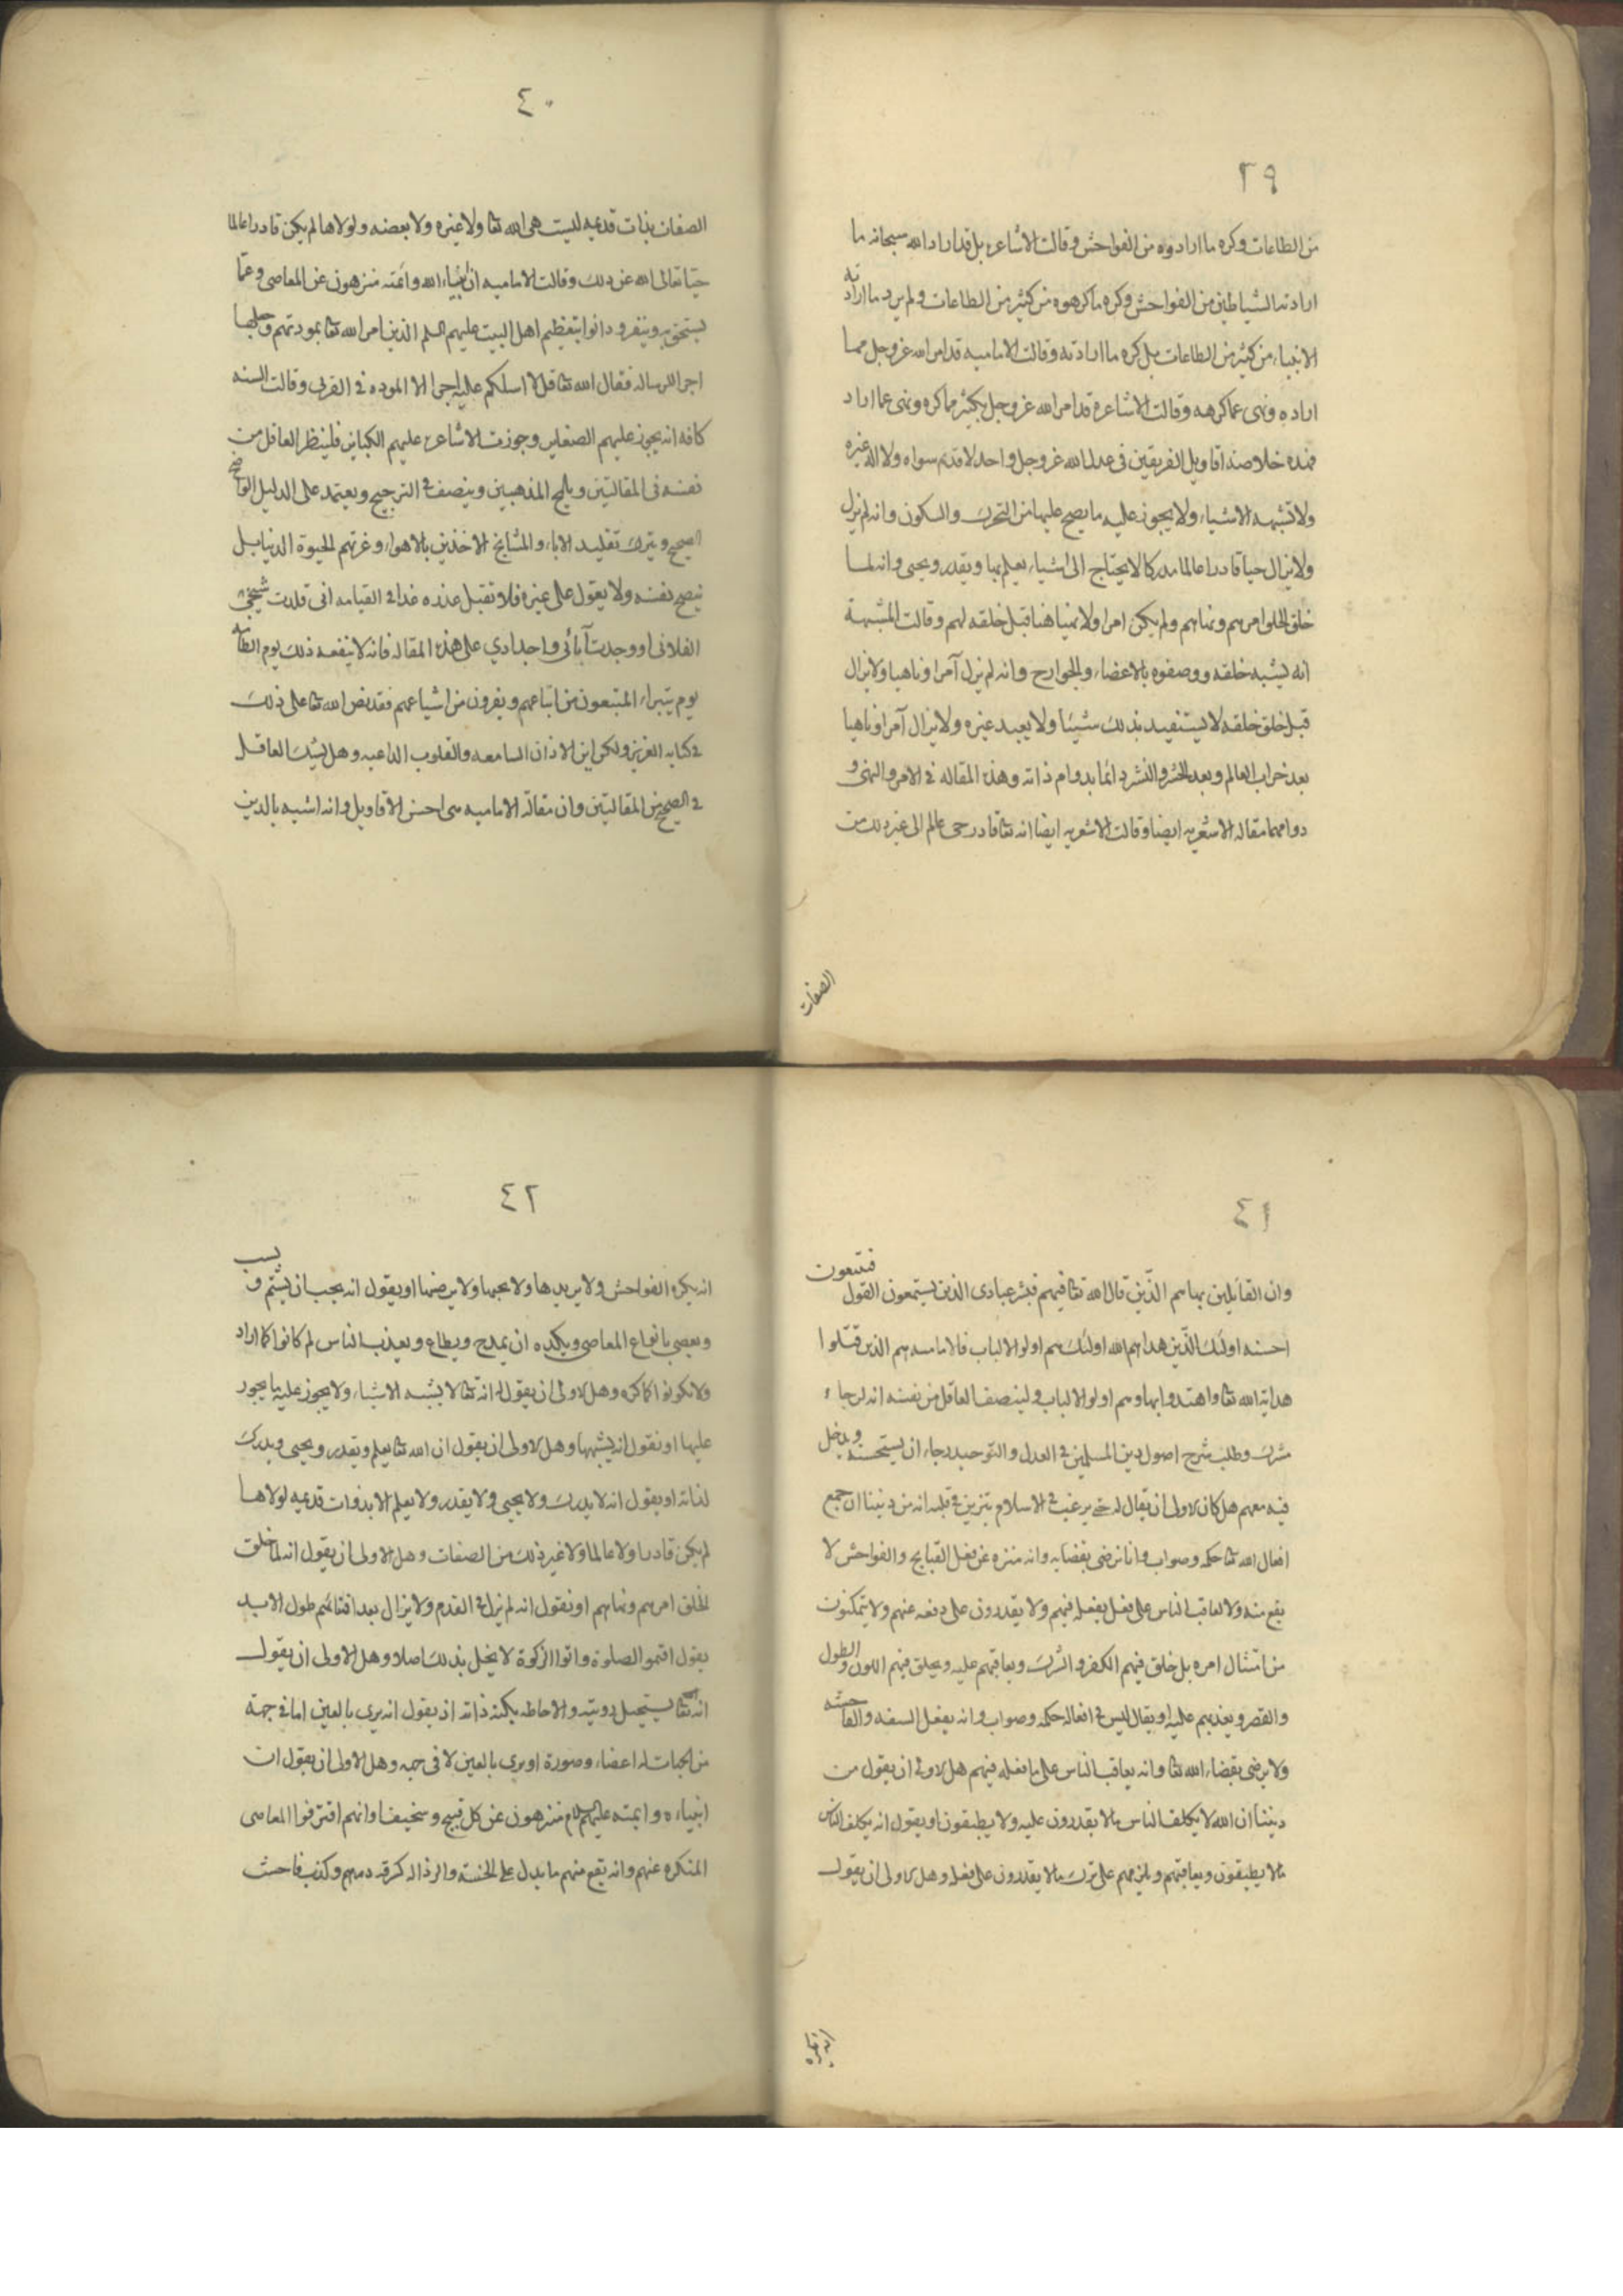 ٣٩
من الطاعات وكره ما ارادوه من الفواحش وقالت الاشاعره بل قد اراد الله سبحانه ما
ارادته الشياطين من الفواحش وكره ما كرهوه من كثير من الطاعات ولم يرد ما ارادته
الانبياء من كثير من الطاعات بل كره ما ارادته وقالت الاماميه قد امر الله عز وجل مما
اراده ونهى عما كرهه وقالت الاشاعرة قد امر الله عز وجل بكثير مما كره ونهى عما اراد
فهذه خلاصه اقاويل الفريقين في عدل الله عز وجل واحد لا قديم سواه ولا اله غيره
ولا تشبهه الاشياء ولا يجوز عليه ما يصح عليها من التحرك والسكون وانه لم يزل
ولا يزال حيا قادرا عالما مدركا لا يحتاج الى اشياء يعلم بها ويقدر ويحيى وانه لما
خلق الخلق امرهم ونهاهم ولم يكن امرا ولا نهيا هنا قبل خلقه لهم وقالت المشبهة
انه يشبه خلقه ووصفوه بالاعضاء والجوارح وانه لم يزل آمرا وناهيا ولا يزال
قبل خلق خلقه لا يستفيد بذلك شيئا ولا يعبد غيره ولا يزال آمرا وناهيا
بعد خراب العالم وبعد الحشر والنشر دائما بدوام ذاته وهذه المقاله في الامر والنهى و
دوامهما مقاله الاشعريه ايضا وقالت الاشعريه ايضا انه تعا قادر حى عالم الى غير ذلك من
الصفات
٤٠
الصفات بذات قديمه ليست هى الله تعا ولا غيره ولا بعضه ولولاها لم يكن قادرا عالما
حيا تعالى الله عن ذلك وقالت الاماميه ان انبياء الله وائمته منزهون عن المعاصى وعما
يستخف به وينفر ودانوا بتعظيم اهل البيت عليهم السلم الذين امر الله تعا بمودتهم وجعلها
اجر الرساله فقال الله تعا قل لا اسلكم عليه اجرا الا الموده في القربى وقالت السنه
كافه انه يجوز عليهم الصغاير وجوزت الاشاعره عليهم الكباير فلينظر العاقل من
نفسه فى المقالتين ويلمح المذهبين وينصف فى الترجيح ويعتمد على الدليل الواضح
الصحيح ويترك تقليد الاباء والمشايخ الاخذين بالاهواء وغرتهم الحيوة الدنيا بل
ينصح نفسه ولا يقول على غيره فلا تقبل عذره غدا فى القيامه انى قلدت شيخى
الفلانى او وجدت آبائى واجدادي على هذه المقاله فانه لا ينفعه ذلك يوم القيامه
يوم يتبراء المتبعون من اتباعهم ويفرون من اشياعهم فقد نص الله تعا على ذلك
فى كتابه العزيز ولكن اين الاذان السامعه والقلوب الداعيه وهل يشك العاقل
فى الصحيح من المقالتين وان مقالة الاماميه هى احسن الاقاويل وانه اشبه بالدين
٤١
وان القائلين بها هم الذين قال الله تعا فيهم فبشر عبادى الذين يستمعون القول فيتبعون
احسنه اولئك الذين هداهم الله اولئك هم اولو الالباب فالاماميه هم الذين قبلوا
هداية الله تعا واهتدوا بها وهم اولو الالباب ولينصف العاقل من نفسه انه لو جاء
مشرك وطلب شرح اصول دين المسلمين فى العدل والتوحيد رجاء ان يستحسنه ويدخل
فيه معهم هل كان الاولى ان يقال له حتى يرغب فى الاسلام بتزين فى قلبه انه من ديننا ان جميع
افعال الله تعا حكمه وصواب وانا نرضى بقضايه وانه منزه عن فعل القبايح والفواحش لا
يقع منه ولا يعاقب الناس على فعل يفعله فيهم ولا يقدرون على دفعه عنهم ولا يتمكنون
من امتثال امره بل خلق فيهم الكفر والشرك ويعاقبهم عليه ويخلق فيهم اللون والطول
والقصر ويعذبهم عليه او يقال ليس فى افعاله حكمه وصواب وانه يفعل السفه والفاحشه
ولا يرضى بقضاء الله تعا وانه يعاقب الناس على ما فعله فيهم هل الاولى ان يقول من
ديننا ان الله لا يكلف الناس ما لا يقدرون عليه ولا يطيقون او يقول انه يكلف الناس
ما لا يطيقون ويعاقبهم ويلزمهم على ترك ما لا يقدرون على فعله وهل الاولى ان يقول
انه يكره
٤٢
انه يكره الفواحش ولا يريدها ولا يحبها ولا يرضها او يقول انه يحب ان يشتم ويسب
ويعصى بانواع المعاصى ويكره ان يمدح ويطاع ويعذب الناس لم كانوا كما اراد
ولا يكونوا كما كره وهل الاولى ان يقول انه تعا لا يشبه الاشياء ولا يجوز عليه ما يجوز
عليها او نقول انه يشبهها وهل الاولى ان يقول ان الله تعا يعلم ويقدر ويحيى ويدرك
لذاته او يقول انه لا يدرك ولا يحيى ولا يقدر ولا يعلم الا بذوات قديمه لولاها
لم يكن قادرا ولا عالما ولا غير ذلك من الصفات وهل الاولى ان يقول انه لما خلق
الخلق امرهم ونهاهم او نقول انه لم يزل فى القدم ولا يزال بعد افنائهم طول الابد
يقول اقيموا الصلوة واتوا الزكوة لا يخل بذلك اصلا وهل الاولى ان يقول
انه تعا يستحيل رويته والاحاطه بكنه ذاته او يقول انه يرى بالعين اما فى جهة
من الجهات له اعضاء وصورة او يرى بالعين لا فى جهه وهل الاولى ان يقول ان
انبياءه وايمته عليهم السلام منزهون عن كل قبيح وسخيف او انهم اقترفوا المعاصى
المنكره عنهم وانه يقع منهم ما يدل على الخسة والرذاله كسرقه درهم وكذب فاحشه